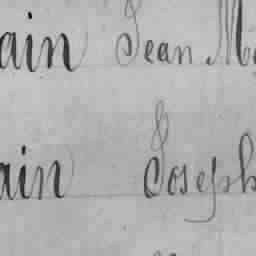 ain Jean M
ain Joseph